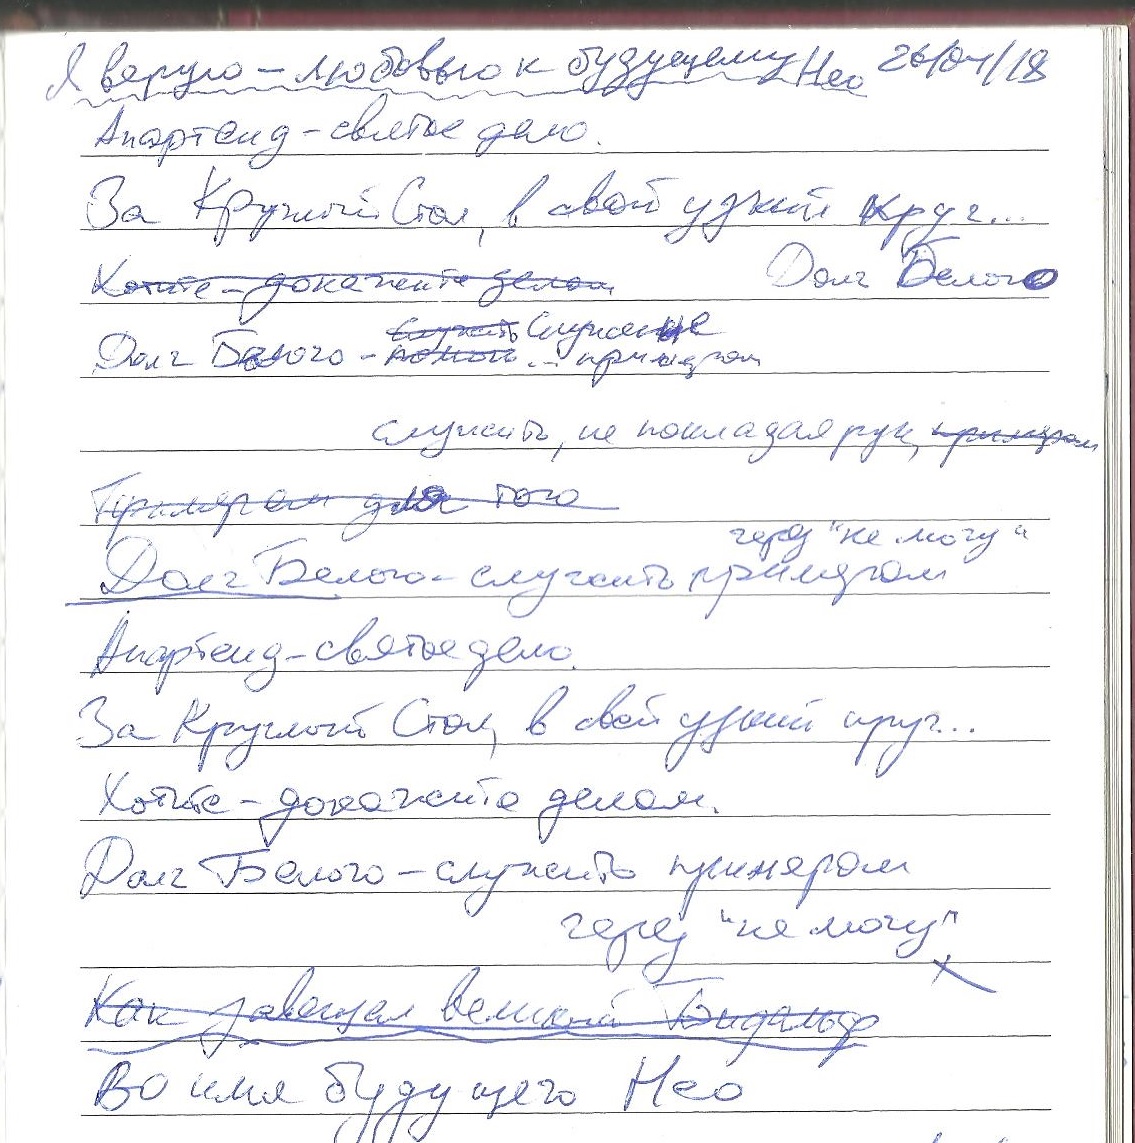 Я верую – любовью к будущему Нео 26/04/18
Апартеид – святое дело.
За Круглый Стол, в свой узкий круг...
Хотите – докажите делом
Долг Белого
служить Служение
Долг Белого – ... примером
служить, не покладая рук, примером
Примером для того
через "не могу"
Долг Белого – служить примером
Апартеид – святое дело.
За Круглый Стол, в свой узкий круг...
Хотите – докажите делом.
Долг Белого – служить примером
через "не могу"
Как завещал великий
Во имя будущего Нео